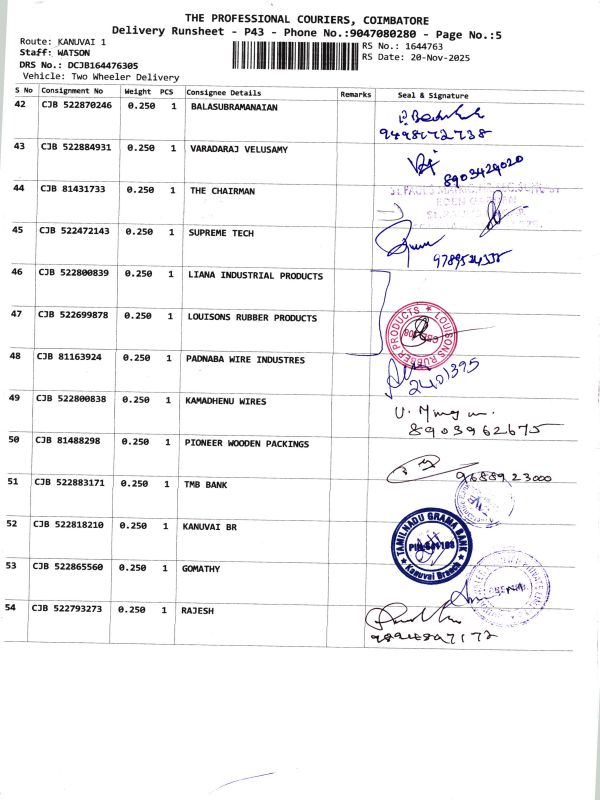 THE PROFESSIONAL COURIERS, COIMBATORE
Delivery Runsheet - P43 - Phone No.:9047080280 - Page No.:5
Route: KANUVAI 1
RS No.: 1644763
Staff: WATSON
RS Date: 20-Nov-2025
DRS No.: DCJB164476305
Vehicle: Two Wheeler Delivery
S No Consignment No Weight PCS Consignee Details Remarks Seal & Signature
42 CJB 522870246 0.250 1 BALASUBRAMANAIAN
43 CJB 522884931 0.250 1 VARADARAJ VELUSAMY
8903429020
44 CJB 81431733 0.250 1 THE CHAIRMAN
45 CJB 522472143 0.250 1 SUPREME TECH
46 CJB 522800839 0.250 1 LIANA INDUSTRIAL PRODUCTS
47 CJB 522699878 0.250 1 LOUISONS RUBBER PRODUCTS
LOUISONS RUBBER PRODUCTS
48 CJB 81163924 0.250 1 PADNABA WIRE INDUSTRES
2401395
49 CJB 522800838 0.250 1 KAMADHENU WIRES
8903962675
50 CJB 81488298 0.250 1 PIONEER WOODEN PACKINGS
9688923000
51 CJB 522883171 0.250 1 TMB BANK
52 CJB 522818210 0.250 1 KANUVAI BR
TAMILNADU GRAMA BANK
Kanuvai Branch
53 CJB 522865560 0.250 1 GOMATHY
54 CJB 522793273 0.250 1 RAJESH